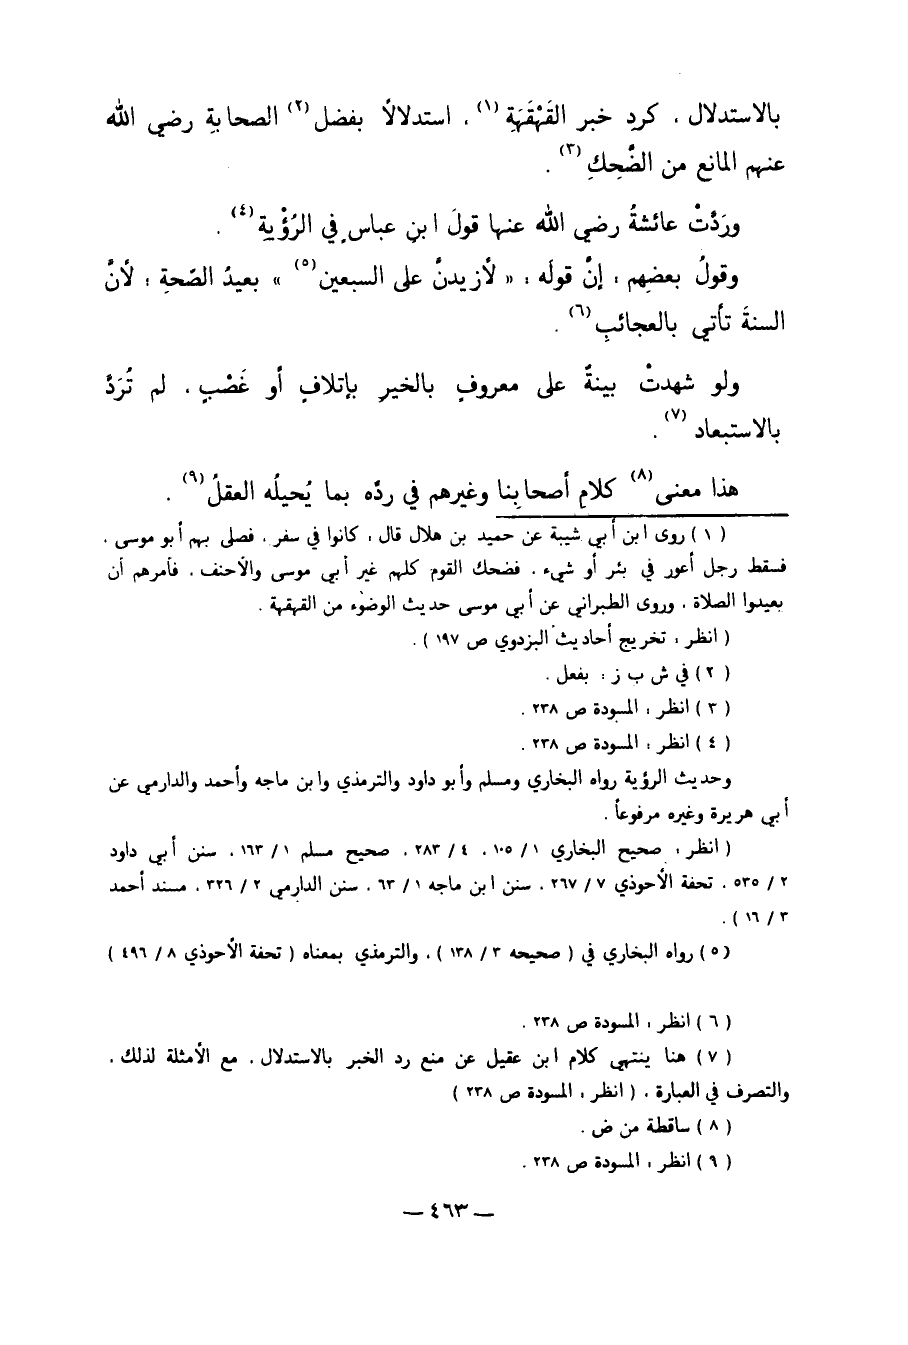 بالاستدلال ، كردِ خبر القَهْقَهَةِ (١) ، استدلالاً بفضل (٢) الصحابةِ رضي الله
عنهم المانع من الضَّحِكِ (٣) .
وردَّتْ عائشةُ رضي الله عنها قولَ ابنِ عباسٍ في الرُؤْيةِ (٤) .
وقولُ بعضِهم : إنَّ قولَه : « لأزيدنَّ على السبعين (٥) » بعيدُ الصّحةِ ؛ لأنَّ
السنةَ تأتي بالعجائبِ (٦) .
ولو شهدتْ بينةٌ على معروفٍ بالخيرِ بإتلافٍ أو غَصْبٍ ، لم تُرَدَّ
بالاستبعاد (٧) .
هذا معنى (٨) كلامِ أصحابِنا وغيرهم في ردِّه بما يُحيلُه العقلُ (٩) .
( ١ ) روى ابن أبي شيبة عن حميد بن هلال قال : كانوا في سفر ، فصلى بهم أبو موسى ،
فسقط رجل أعور في بئر أو شيء ، فضحك القوم كلهم غير أبي موسى والأحنف ، فأمرهم أن
يعيدوا الصلاة ، وروى الطبراني عن أبي موسى حديث الوضوء من القهقهة .
( انظر : تخريج أحاديث البزدوي ص ١٩٧ ) .
( ٢ ) في ش ب ز : بفعل .
( ٣ ) انظر : المسودة ص ٢٣٨ .
( ٤ ) انظر : المسودة ص ٢٣٨ .
وحديث الرؤية رواه البخاري ومسلم وأبو داود والترمذي وابن ماجه وأحمد والدارمي عن
أبي هريرة وغيره مرفوعاً .
( انظر : صحيح البخاري ١ / ١٠٥ ، ٤ / ٢٨٣ ، صحيح مسلم ١ / ١٦٣ ، سنن أبي داود
٢ / ٥٣٥ ، تحفة الأحوذي ٧ / ٢٦٧ ، سنن ابن ماجه ١ / ٦٣ ، سنن الدارمي ٢ / ٣٢٦ ، مسند أحمد
٣ / ١٦ ) .
( ٥ ) رواه البخاري في ( صحيحه ٣ / ١٣٨ ) ، والترمذي بمعناه ( تحفة الأحوذي ٨ / ٤٩٦ )
( ٦ ) انظر : المسودة ص ٢٣٨ .
( ٧ ) هنا ينتهي كلام ابن عقيل عن منع رد الخبر بالاستدلال ، مع الأمثلة لذلك ،
والتصرف في العبارة ، ( انظر : المسودة ص ٢٣٨ )
( ٨ ) ساقطة من ض .
( ٩ ) انظر : المسودة ص ٢٣٨ .
— ٤٦٣ —